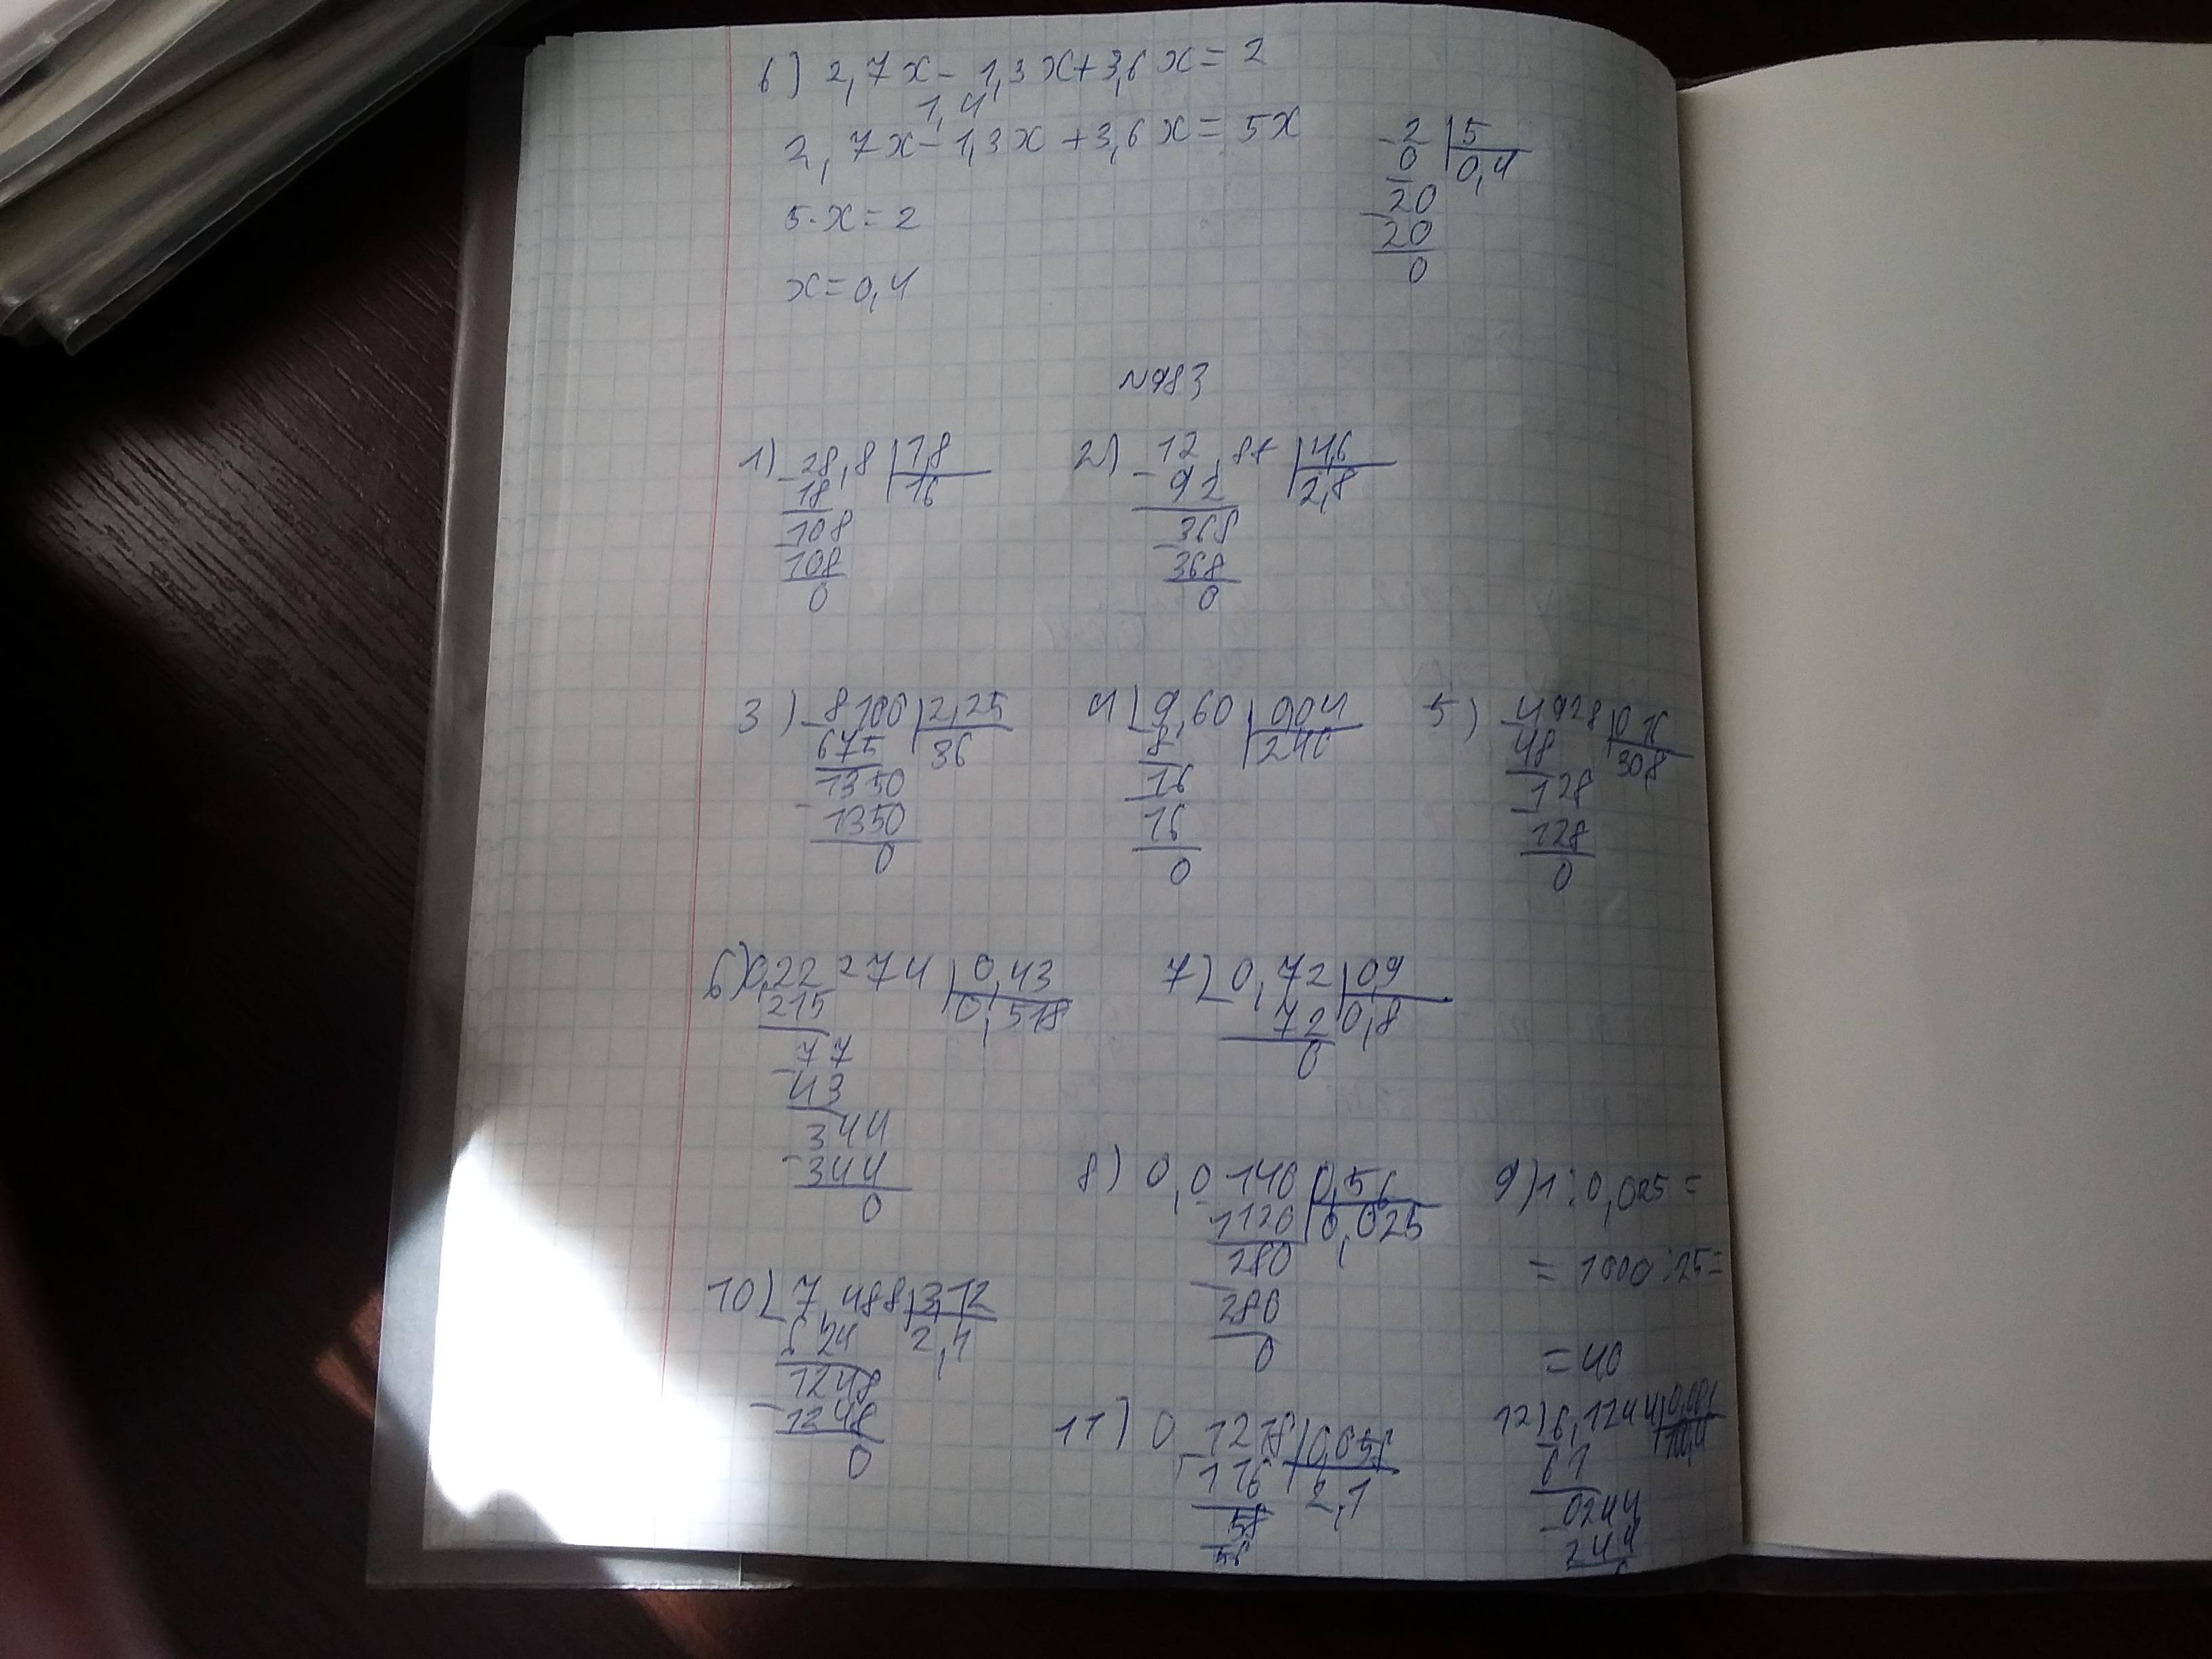 6) 2,7x - 1,3x + 3,6x = 2
1,4
2,7x - 1,3x + 3,6x = 5x
5·x = 2
x = 0,4
-2 | 5
0 | 0,4
-20
20
0
N983
1) -28,8 | 1,8
18 | 16
-108
108
0
2) -12,88 | 4,6
92 | 2,8
-368
368
0
3) -8,100 | 2,25
675 | 36
-1350
1350
0
4) 9,60 | 0,04
8 | 240
-16
16
0
5) -4928 | 0,16
48 | 308
-128
128
0
6) 0,22274 | 0,43
215 | 0,518
-77
43
-344
344
0
7) -0,72 | 0,9
72 | 0,8
0
8) 0,0140 | 0,56
1120 | 0,025
-280
280
0
9) 1 : 0,025 =
= 1000 : 25 =
= 40
10) -7,488 | 3,12
624 | 2,4
-1248
1248
0
11) 0,1218 | 0,058
116 | 2,1
-58
58
12) 6,1244
61
-0244
244